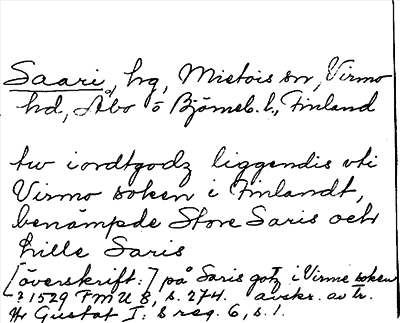 Saari, hg, Mietois sn, Virmo
hd, Åbo o Björneb. l., Finland
tw iordtgodz liggendis vti
Virmo soken i Finlandt,
benämpde Store Saris och
lille Saris
[överskrift:] på Saris gotz i Virme soken
? 1529 FMU 8, s. 274. avskr. av tr.
Gustaf I:s reg. 6, s. 1.